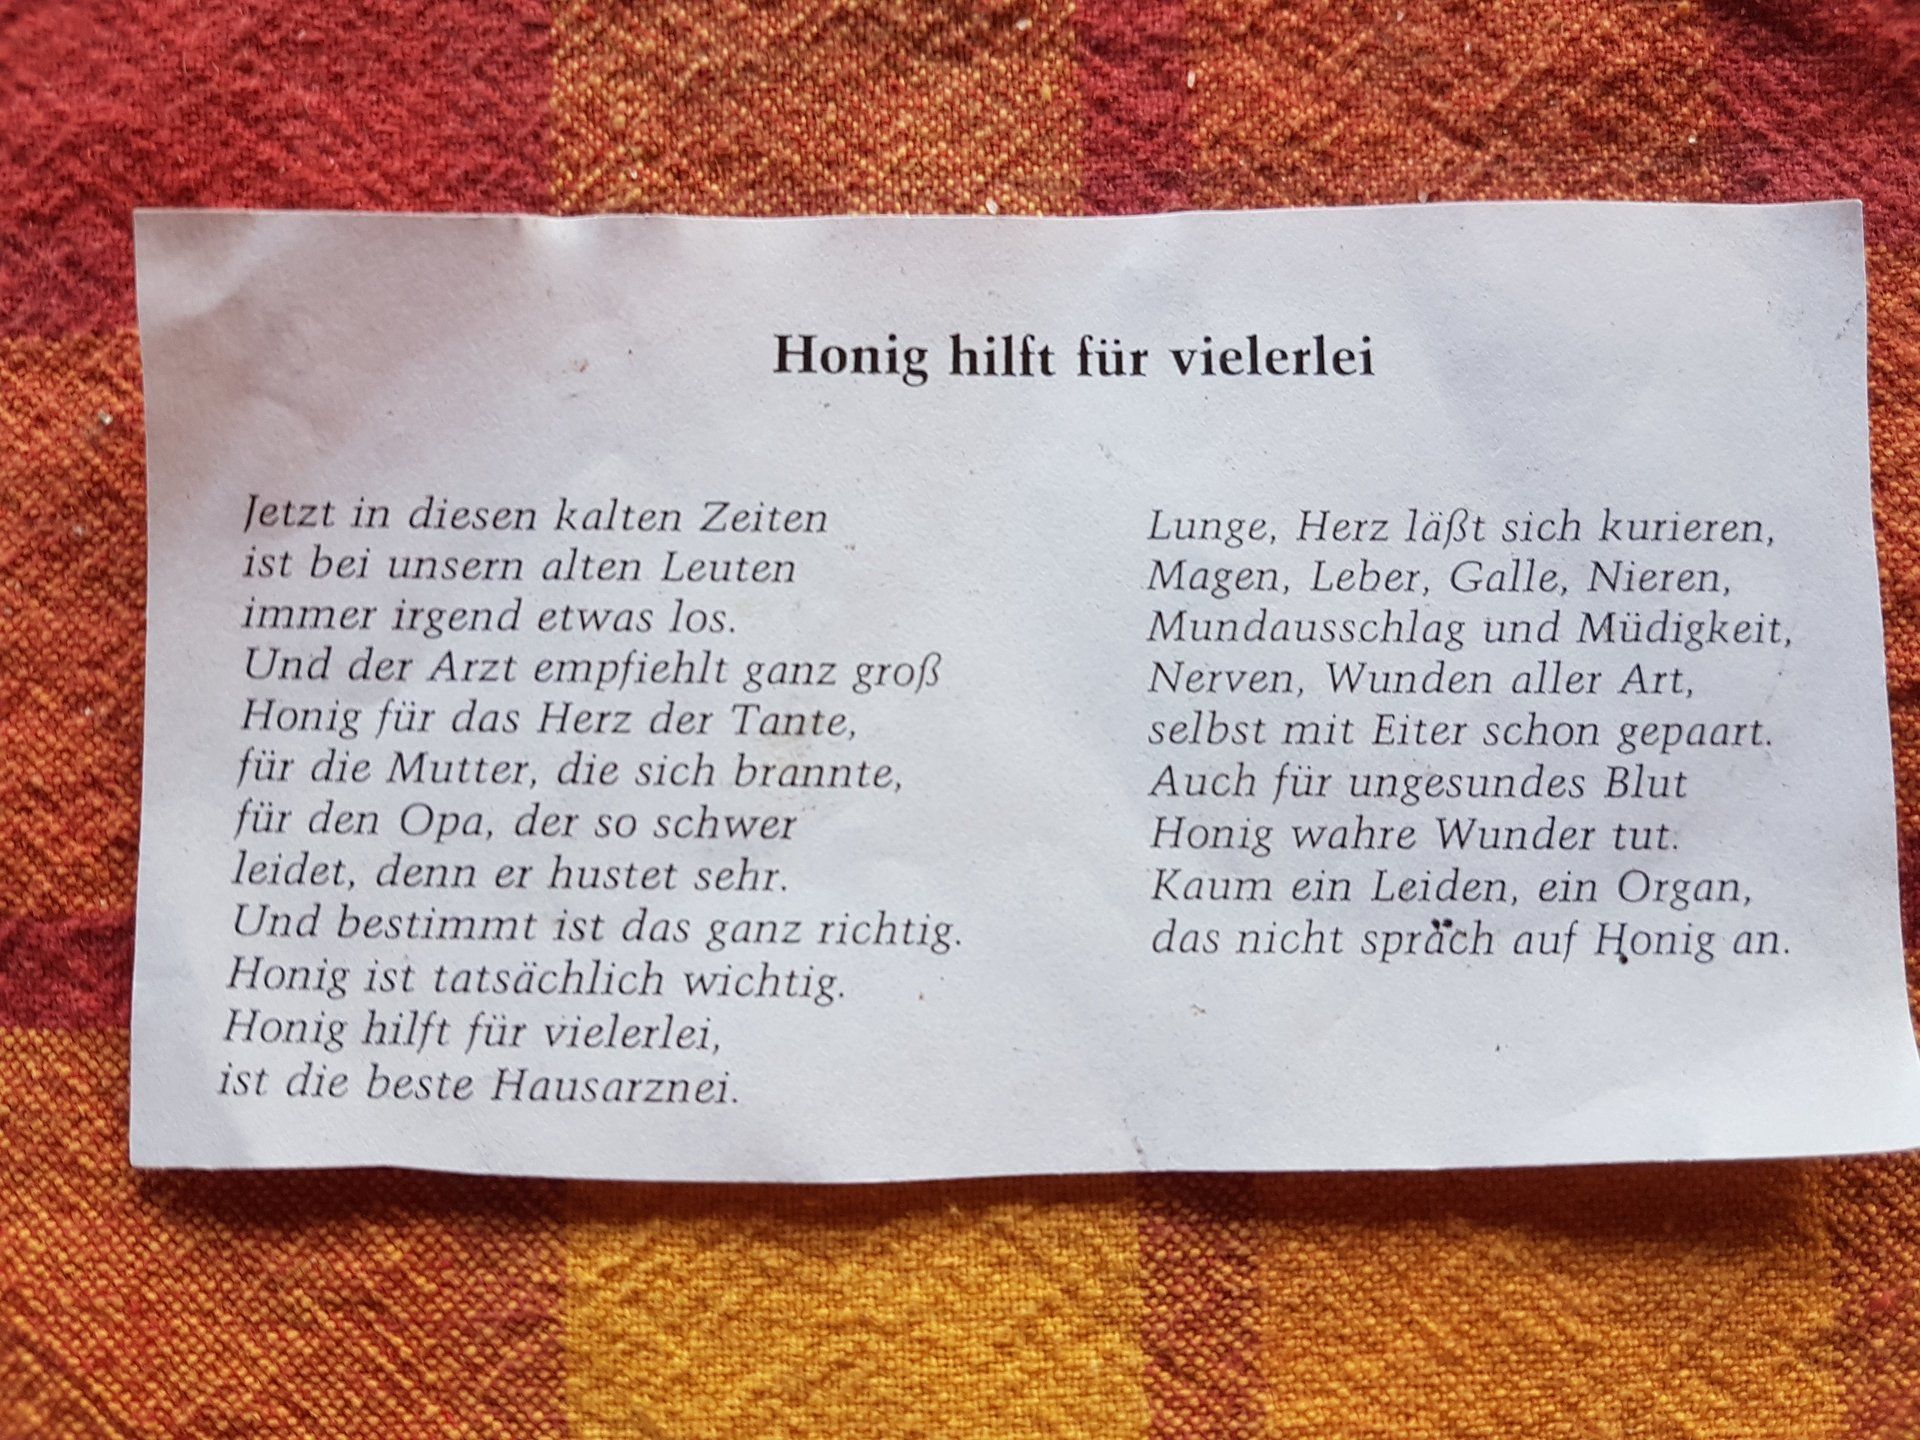 Honig hilft für vielerlei
Jetzt in diesen kalten Zeiten
ist bei unsern alten Leuten
immer irgend etwas los.
Und der Arzt empfiehlt ganz groß
Honig für das Herz der Tante,
für die Mutter, die sich brannte,
für den Opa, der so schwer
leidet, denn er hustet sehr.
Und bestimmt ist das ganz richtig.
Honig ist tatsächlich wichtig.
Honig hilft für vielerlei,
ist die beste Hausarznei.
Lunge, Herz läßt sich kurieren,
Magen, Leber, Galle, Nieren,
Mundausschlag und Müdigkeit,
Nerven, Wunden aller Art,
selbst mit Eiter schon gepaart.
Auch für ungesundes Blut
Honig wahre Wunder tut.
Kaum ein Leiden, ein Organ,
das nicht spräch auf Honig an.